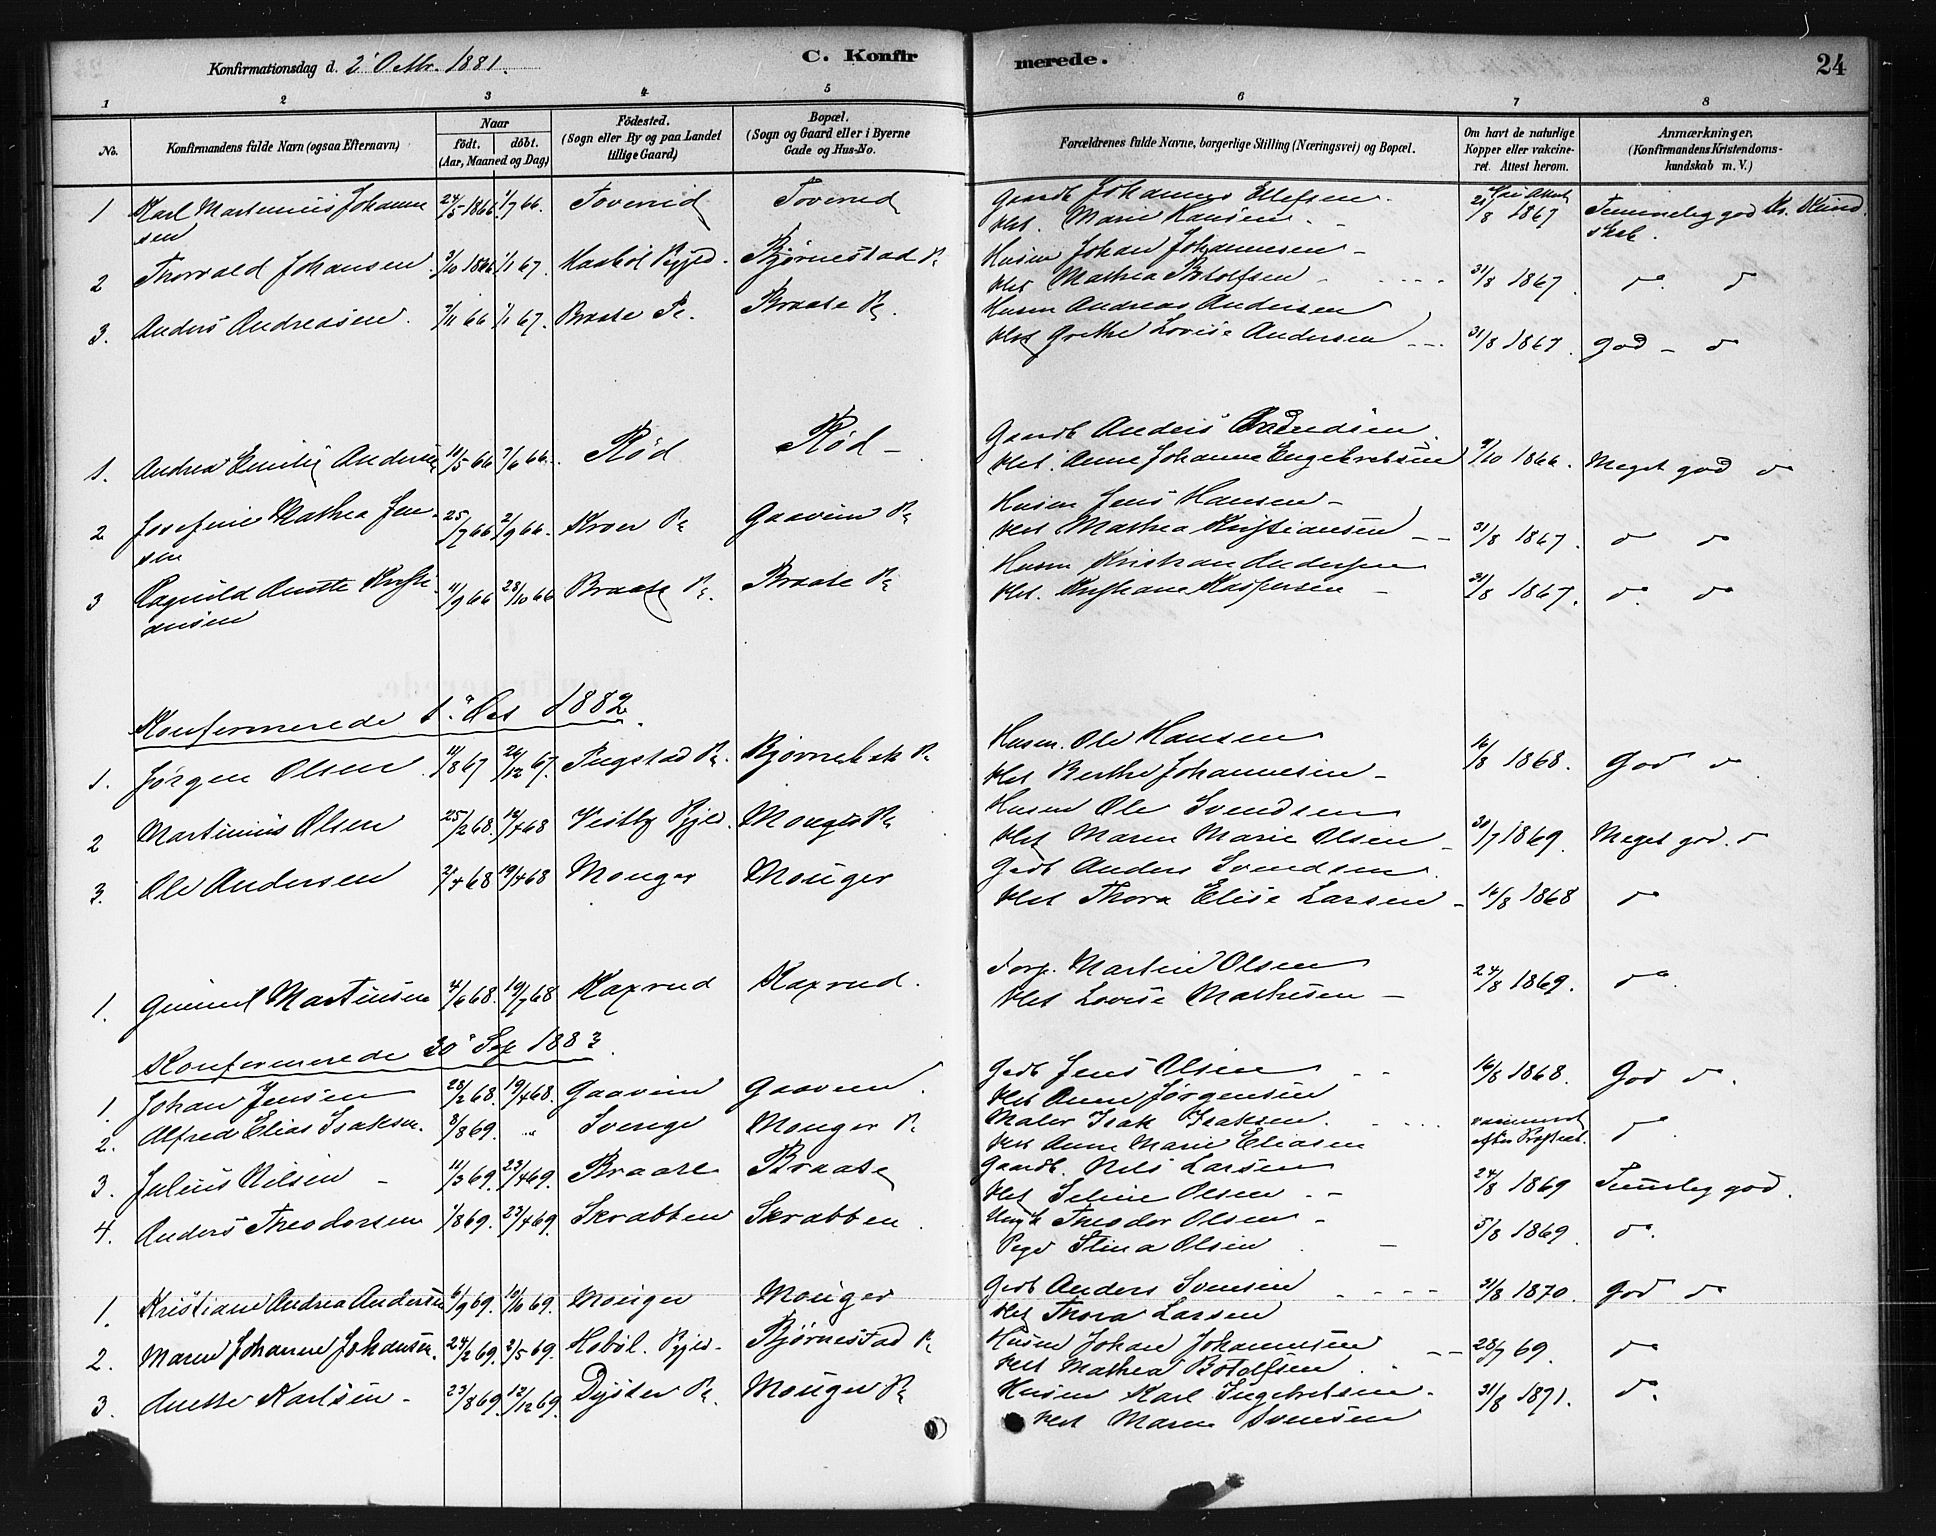 Konfirmationsdag d. 2' Octbr. 1881. C. Konfirmerede. 24
1 2 3 4 5 6 7 8
No. Konfirmandens fulde Navn (ogsaa Efternavn) Naar født. døbt. (Aar, Maaned og Dag) Fødested. (Sogn eller By og paa Landet tillige Gaard) Bopæl. (Sogn og Gaard eller i Byerne Gade og Hus-No. Forældrenes fulde Navne, borgerlige Stilling (Næringsvei) og Bopæl. Om havt de naturlige Kopper eller vakcineret. Attest herom. Anmærkninger, (Konfirmandens Kristendomskundskab m. V.)
1 Karl Martinius Johannesen 24/5 1866 1/7 66. Toverud Toverud Gaardb. Johannes Ellefsen. 1867 Temmelig god Kr. Kundskab.
Hst. Maren Hansen
2 Thorvald Johansen 1866 1/1 67. Haabøl Pgjld. Bjørnestad Pl. Husm Johan Johannesen
Hst Mathea Botolfsen 31/8 1867. do do
3. Anders Andreasen. 66 1/1 67. Braate Pl. Braate Pl. Husm Andreas Andersen
Hst Grethe Lovise Andersen 31/8 1867. god do
1. Andrea Emilie Andersen 66 66. Rød Rød Gaardb Anders
Hst. Anne Johanne Engebretsen 1866. Meget god do
2 Josefine Mathea Jensen 25/7 66 2/9 66. Kroer Pl Gaaveim Pl Husm Jens Hansen
Hst Mathea Kristiansen 31/8 1867. do do
3 Ragnild Anette Kristiansen 11/9 66 28/10 66 Braate Pl. Braate Pl Husm Kristian Andersen
Hst. Kristiane Kaspersen 31/8 1867. do do
Konfermerede 1. Oct 1882.
1. Jørgen Olsen 11/8 67 26/12 67. Pugstad Pl. Bjørnebek Pl. Husm. Ole Hansen
Hst Berthe Johannesen 16/8 1868. God do
2 Martinius Olsen 25/2 68. 12/4 68 Vestby Pgjld. Mouger Pl Husm Ole Svendsen
Hst Maren Marie Olsen 30/7 1869. Meget god. do
3. Ole Andersen 2/4 68 19/4 68 Mouger Mouger Gdb Anders Svendsen.
Hst Thora Elise Larsen 16/8 1868 do
1. Martinsen 4/6 68. 19/7 68 Kaxrud Kaxrud. Forp. Martin Olsen
Hst Lovise Mathesen 24/8 1869. do
Konfermerede 30' Sep 1883.
1. Johan Jensen 28/2 68. 19/4 68. Gaaveim Gaaveim. Gdb Jens Olsen 16/8 1868. God do.
Hst Anne Jørgensen
2. Alfred Elias Isaksen. 3/8 69. Sverige Mouger Pl Maler Isak Isaksen. do
Hst Anne Marie Eliasen
3. Julius Nilsen 11/3 69. 23/4 69. Braate Braate Gaardb. Nils Larsen
Hst Seline Olsen 24/8 1869 Temlig god.
4. Anders Theodorsen 69. 23/4 69. Skrabben Skrabben. Ungk Theodor Olsen 5/8 1869. do.
Pige Stina Olsen
1. Kristiane Andrea Andersen 6/9 69. 10/10 69. Mouger Mouger Gdb Anders Svensen 31/8 1870. God do
Hst Thora Larsen
2. Maren Johanne Johansen. 24/2 69. 2/5 69. Hobøl. Pgjld. Bjørnestad Pl Husm Johan Johannesen 69. do
Hst Mathea Botolfsen
3. Anette Karlsen 23/8 69 12/12 69. Dyster Pl. Mouger Pl Husm Karl Ingebretsen. 31/8 1871. do.
Hst Maren Svensen